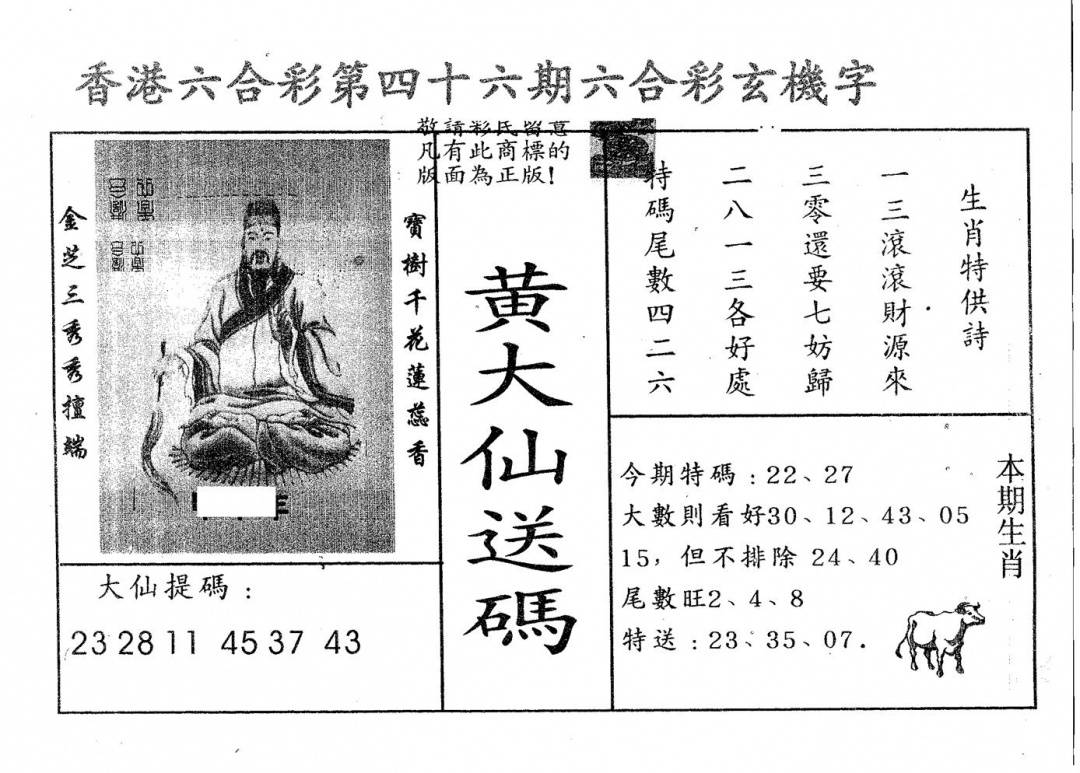 香港六合彩第四十六期六合彩玄機字
敬請彩民留意
凡有此商標的
版面為正版!
寶樹千花蓮蕊香
金芝三秀秀擅端
黃大仙送碼
生肖特供詩
一三滾滾財源來
三零還要七妨歸
二八一三各好處
特碼尾數四二六
大仙提碼:
23 28 11 45 37 43
今期特碼:22、27
大數則看好30、12、43、05
15,但不排除 24、40
尾數旺2、4、8
特送:23、35、07.
本期生肖